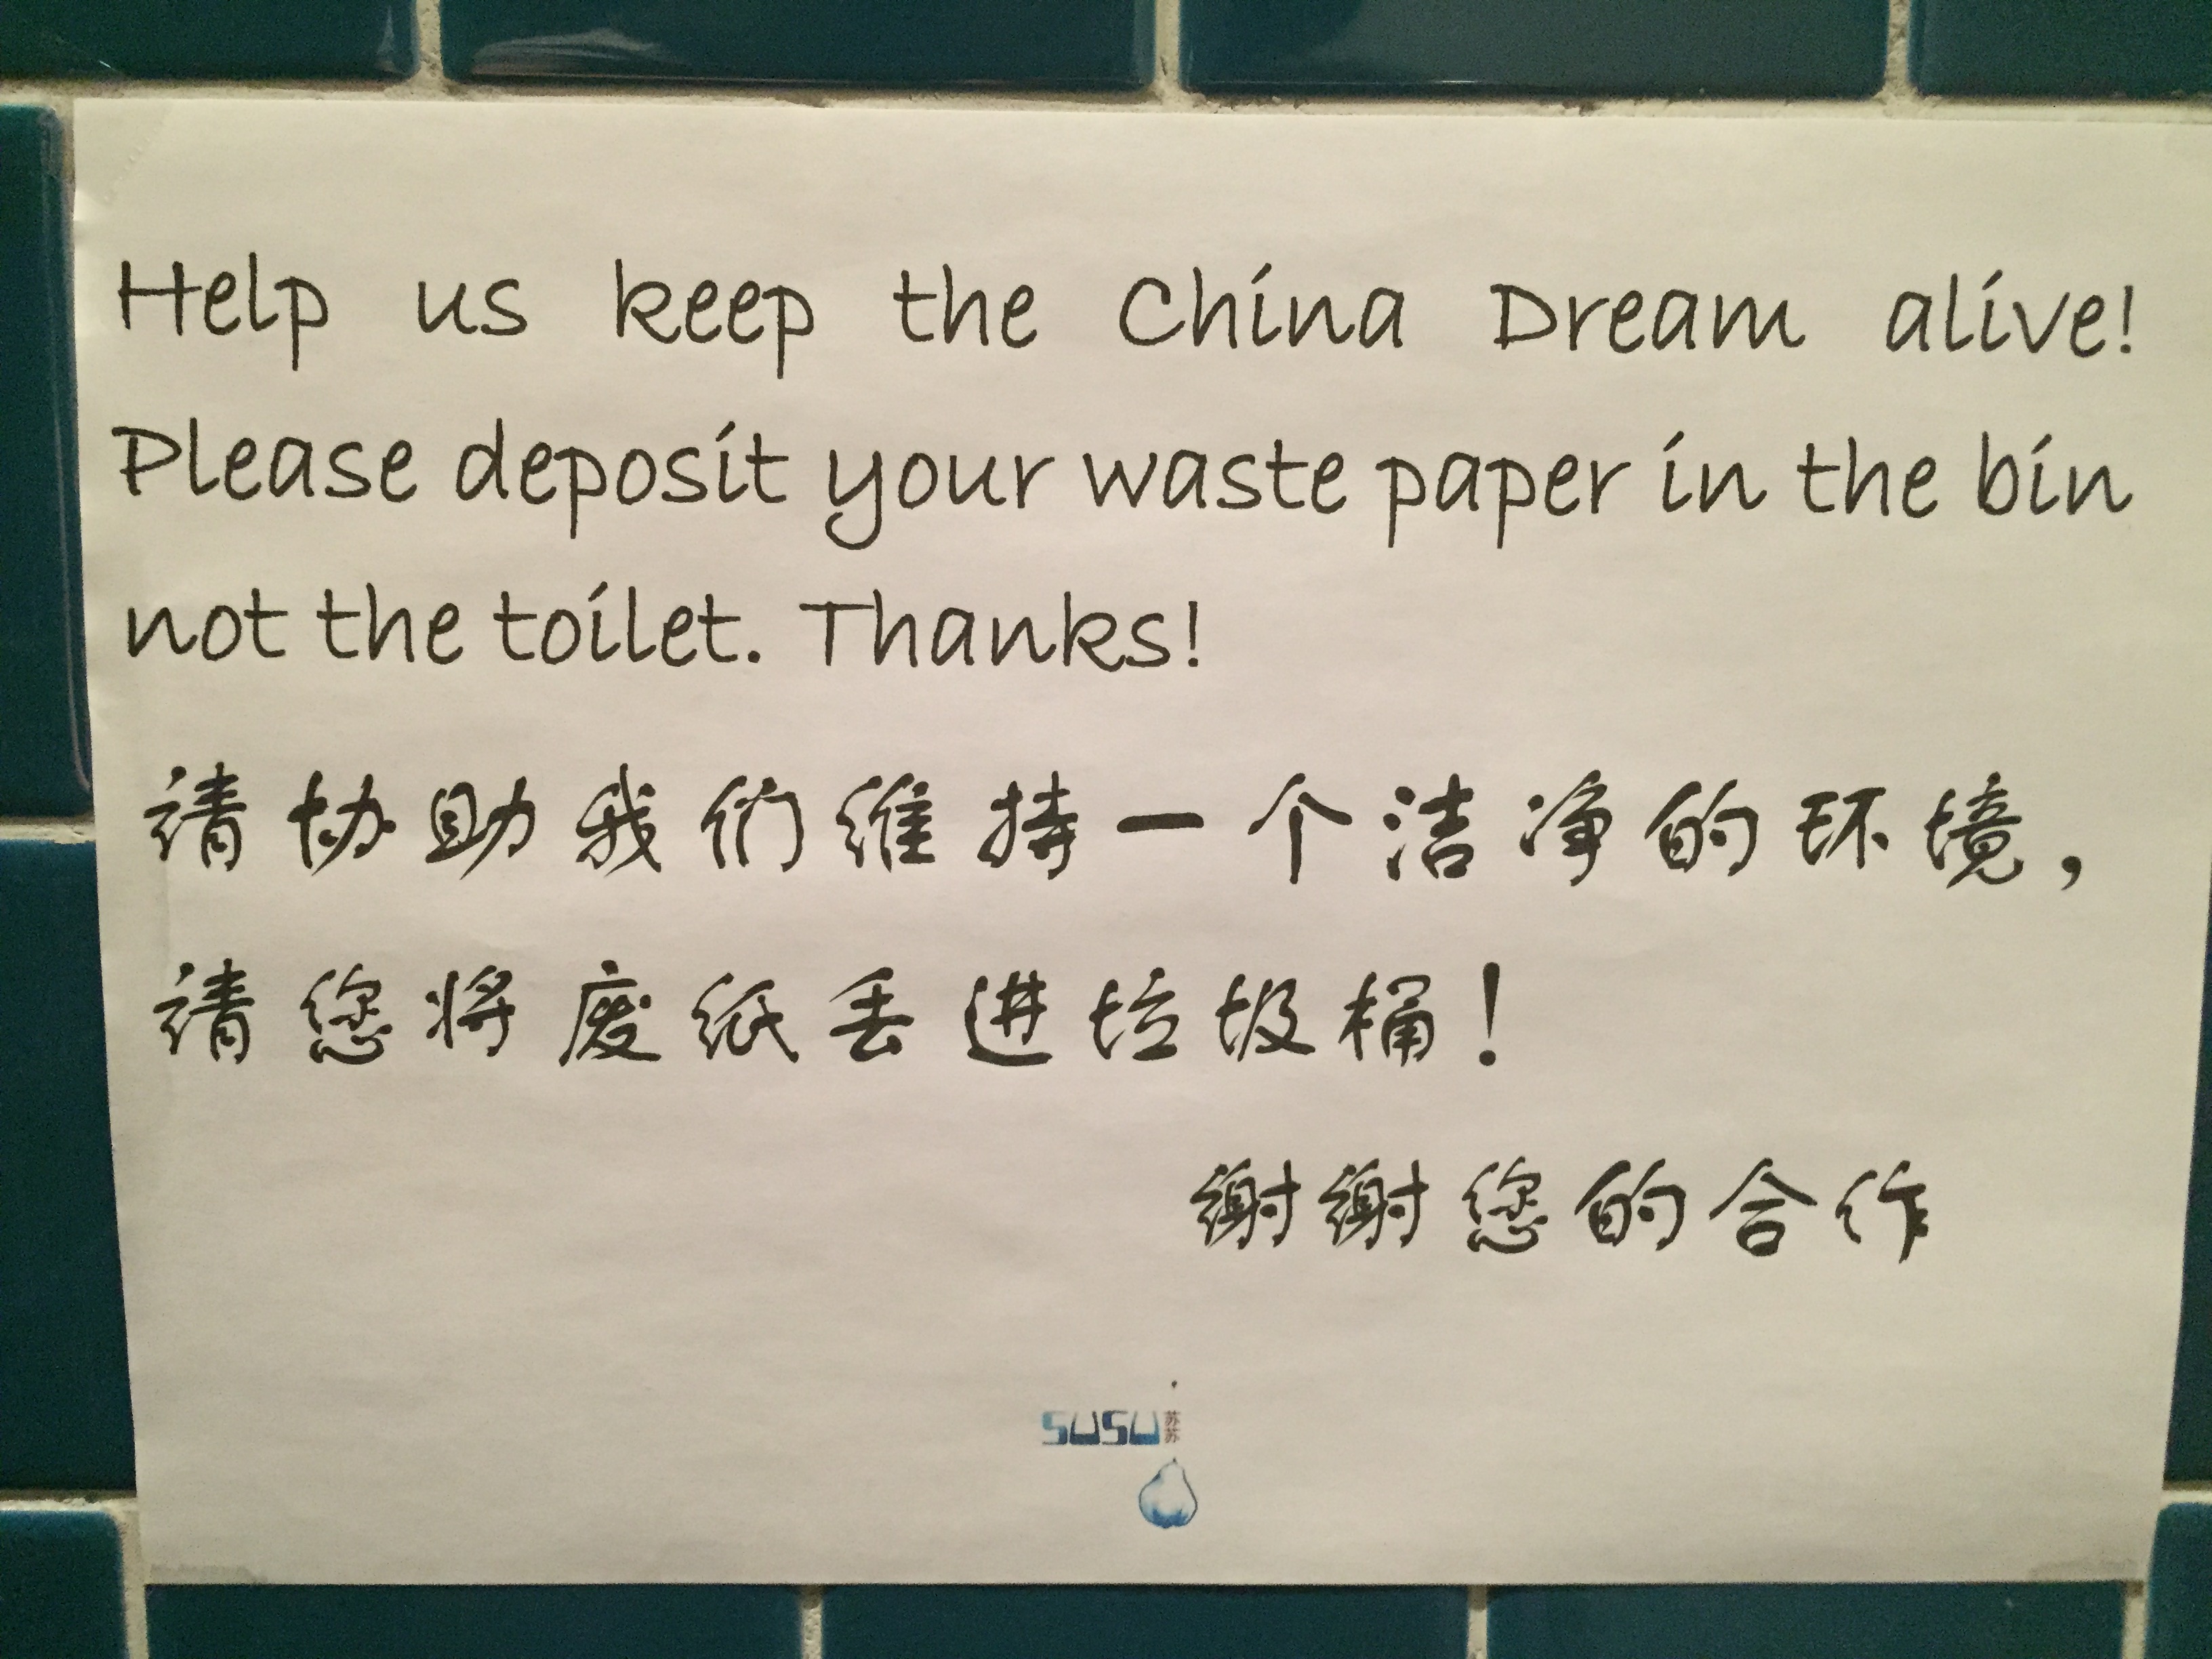 Help us keep the China Dream alive!
Please deposit your waste paper in the bin
not the toilet. Thanks!
请协助我们维持一个洁净的环境，
请您将废纸丢进垃圾桶！
谢谢您的合作
SUSU苏苏